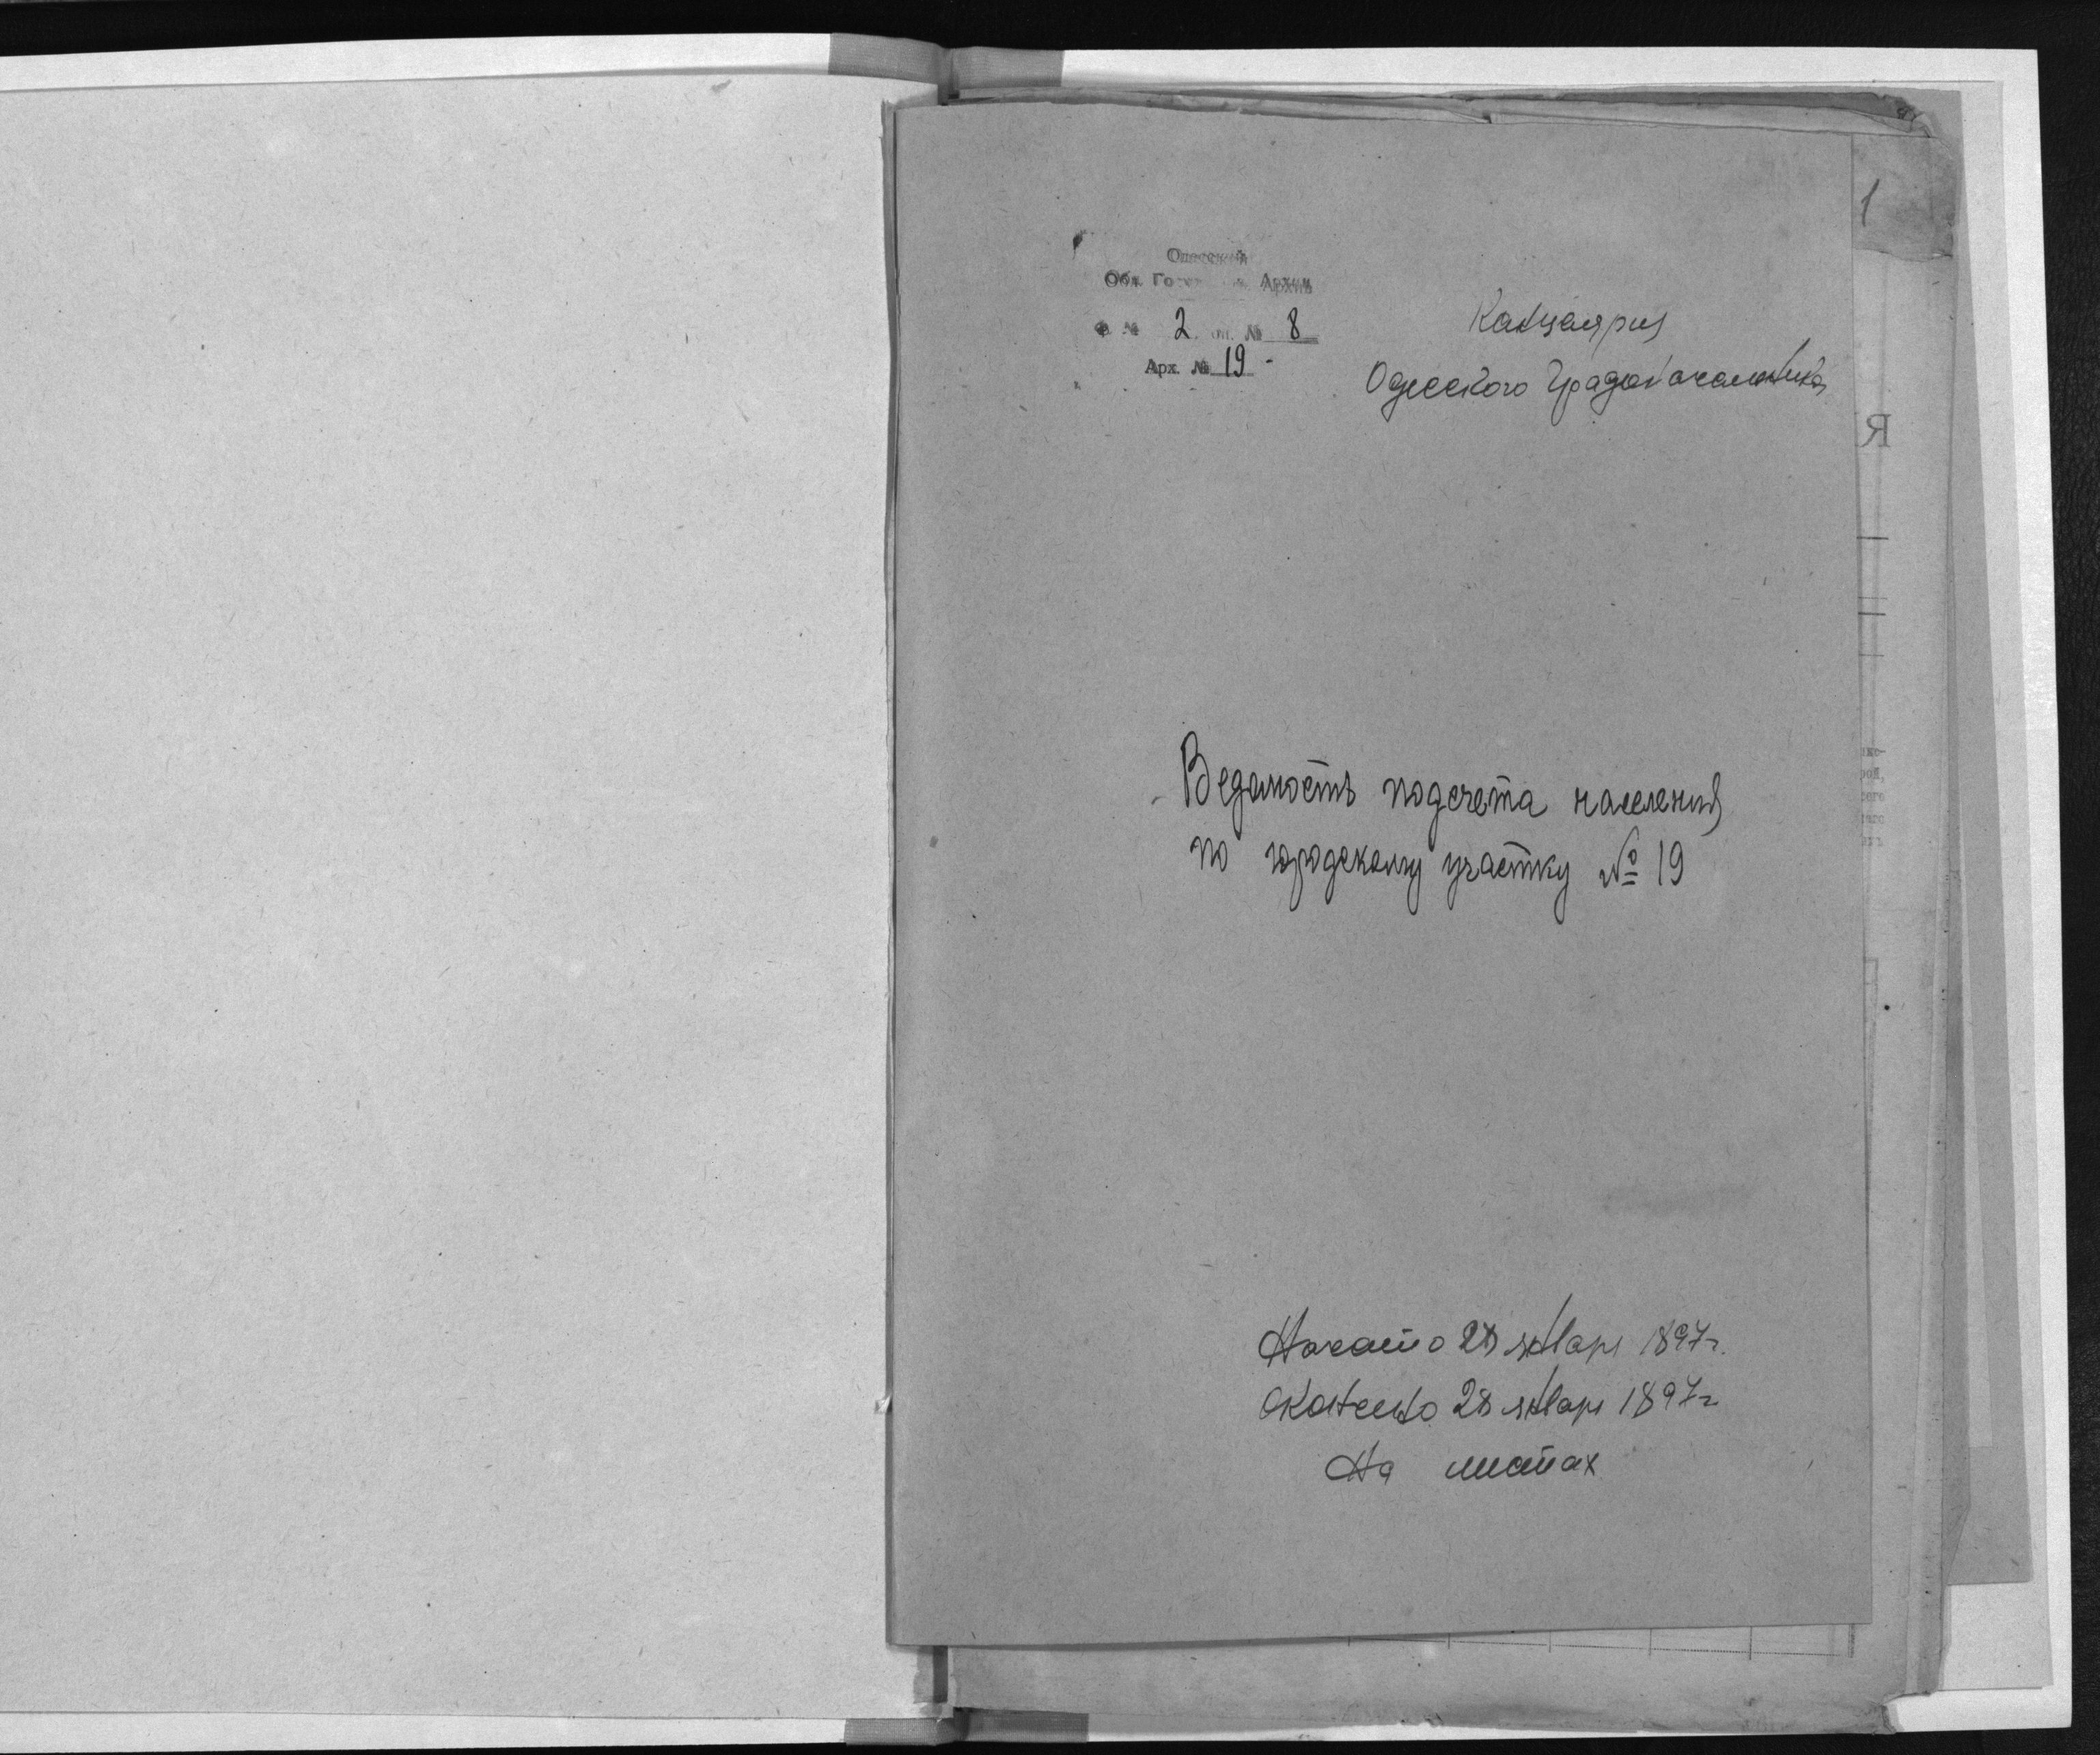 Одесский
Обл. Архив
Ф. № 2. оп. № 8
Арх. № 19 -
Канцелярия
Одесского Градоначальника
Ведомость подсчета населения
по городскому участку № 19
Начато 28 января 1897г.
Окончено 28 января 1897г
На листах
1
Я